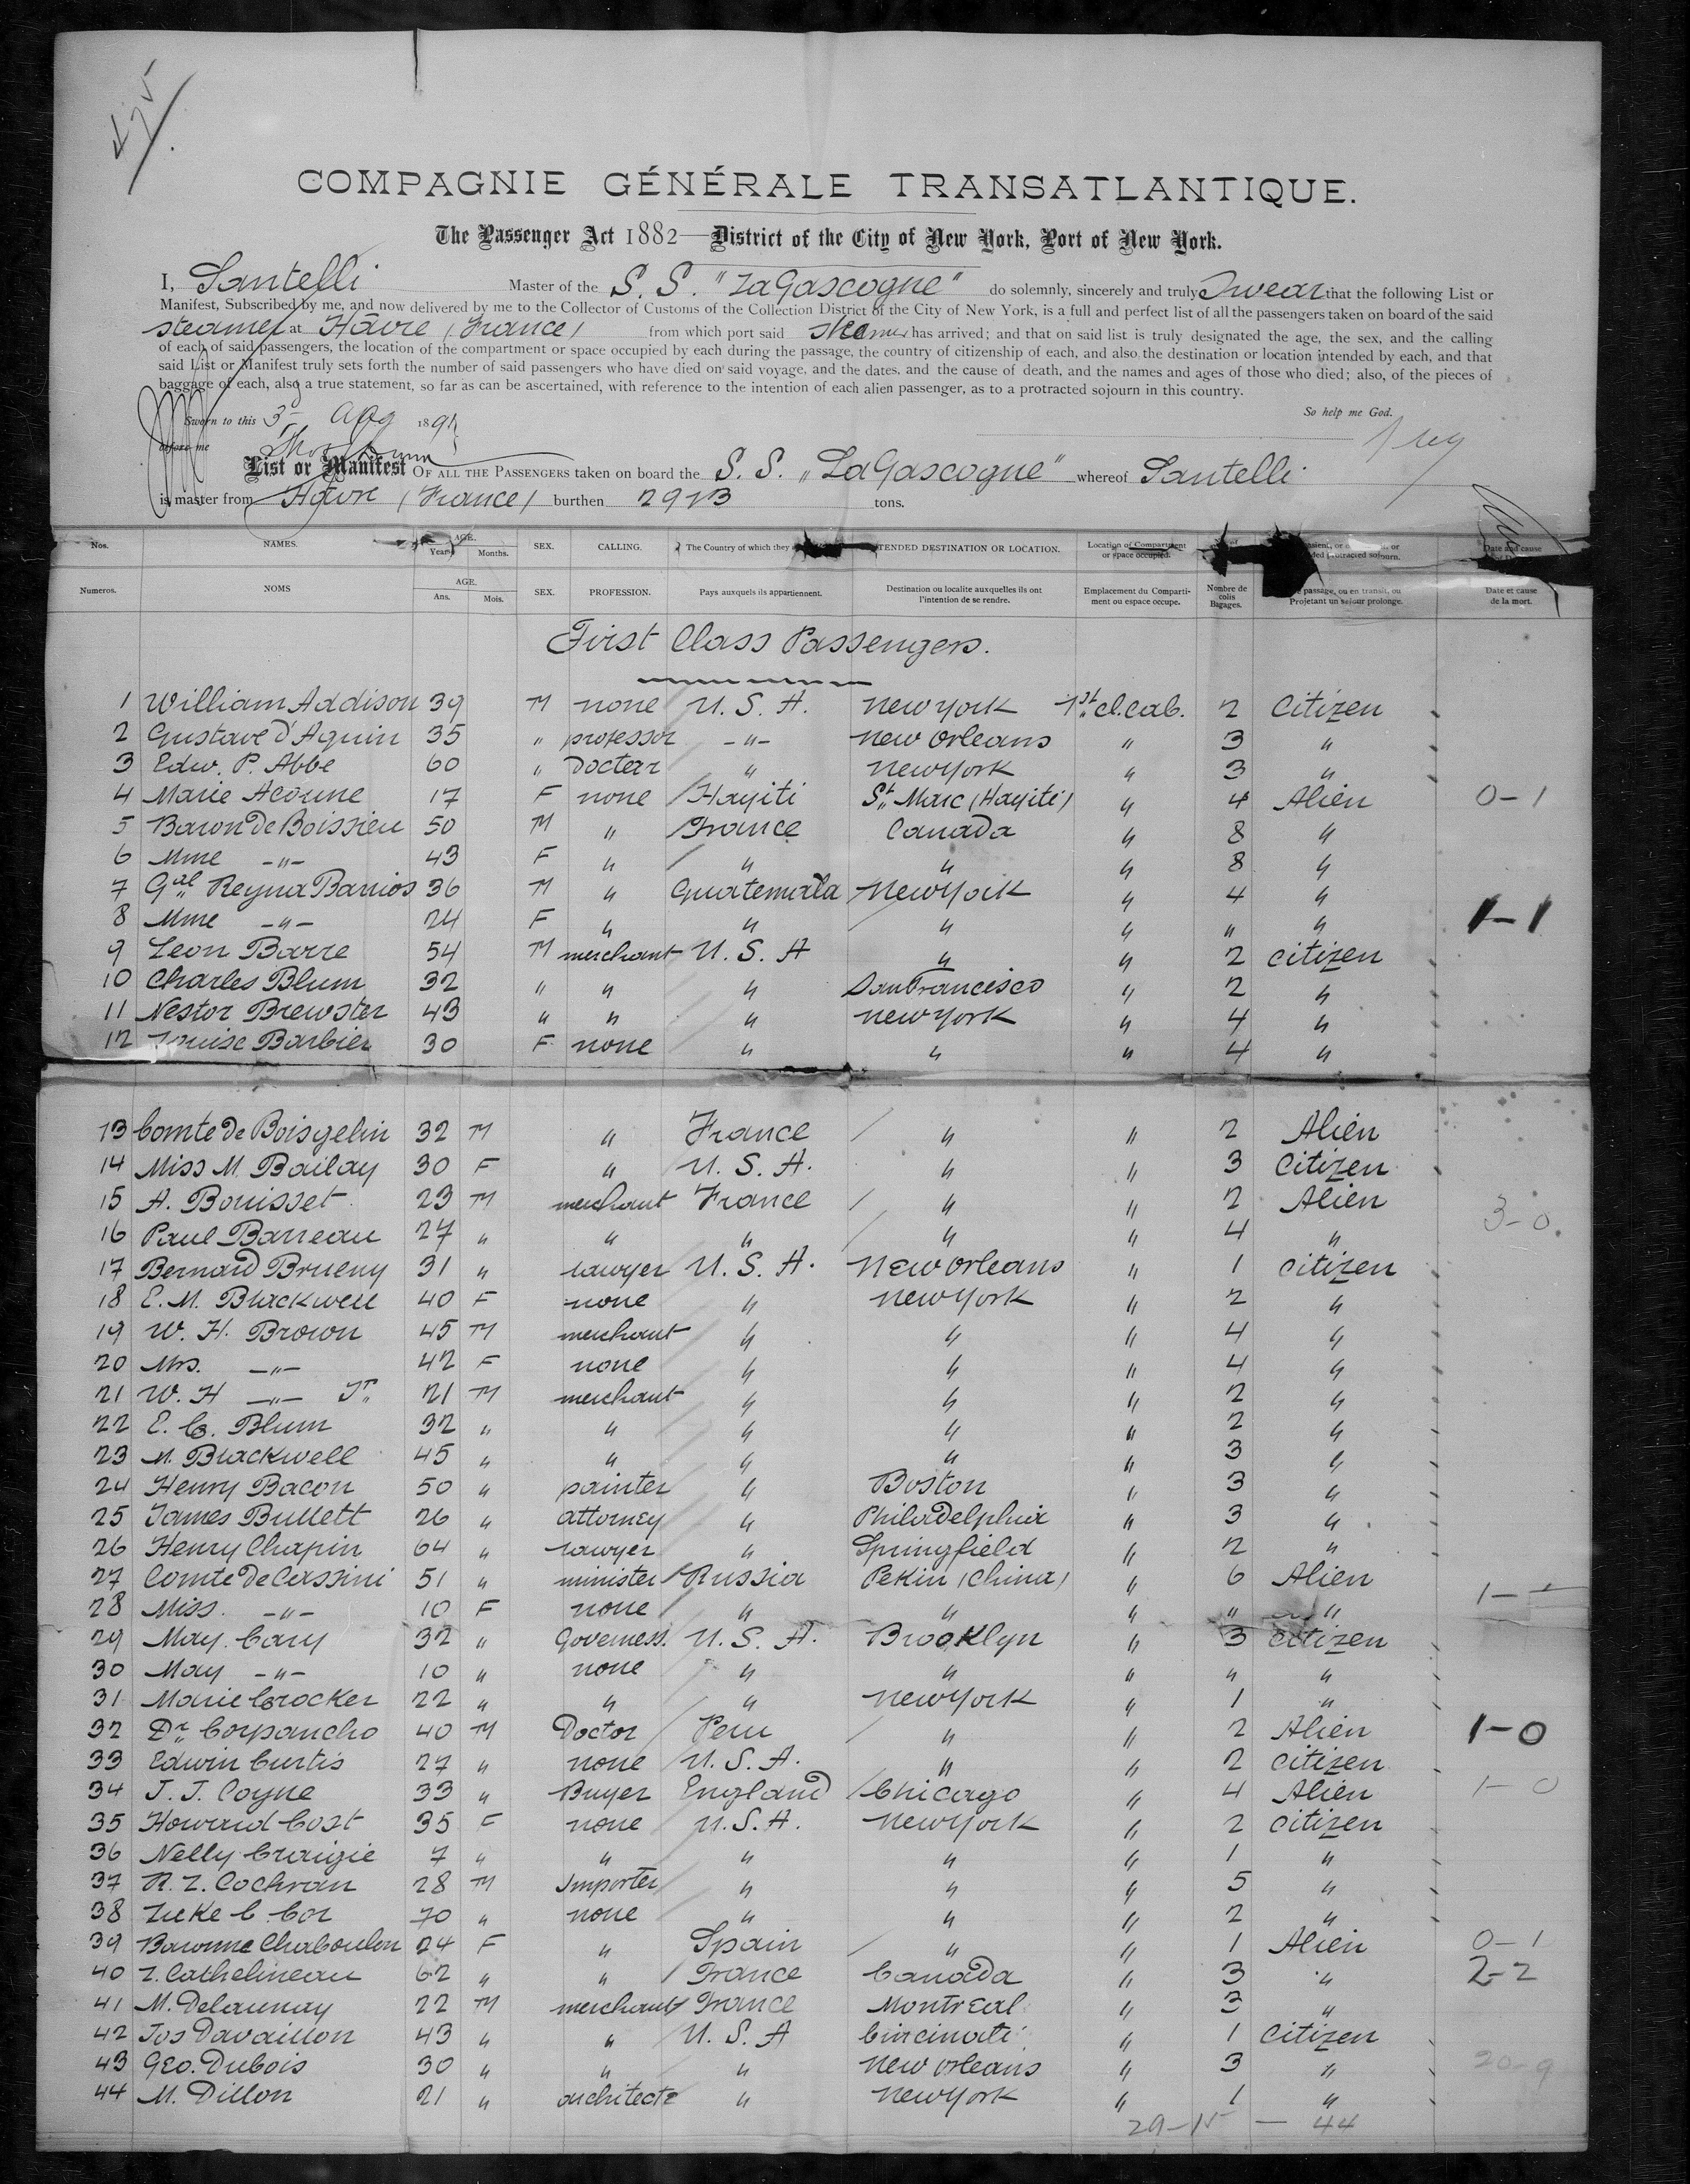 COMPAGNIE GÉNÉRALE TRANSATLANTIQUE.
The Passenger Act 1882—District of the City of New York, Port of New York.
I, Santelli Master of the S. S. "La Gascogne" do solemnly, sincerely and truly Swear that the following List or
Manifest, Subscribed by me, and now delivered by me to the Collector of Customs of the Collection District of the City of New York, is a full and perfect list of all the passengers taken on board of the said
steamer at Hâvre (France) from which port said steamer has arrived; and that on said list is truly designated the age, the sex, and the calling
of each of said passengers, the location of the compartment or space occupied by each during the passage, the country of citizenship of each, and also the destination or location intended by each, and that
said List or Manifest truly sets forth the number of said passengers who have died on said voyage, and the dates, and the cause of death, and the names and ages of those who died; also, of the pieces of
baggage of each, also a true statement, so far as can be ascertained, with reference to the intention of each alien passenger, as to a protracted sojourn in this country.
So help me God.
Sworn to this 3 Aug 1891
before me
List or Manifest OF ALL THE PASSENGERS taken on board the S. S. "La Gascogne" whereof Santelli
is master from Hâvre (France) burthen tons.
Nos. NAMES. AGE. Years Months. SEX. CALLING. The Country of which they INTENDED DESTINATION OR LOCATION. Location of Compartment or space occupied. Date and cause
Numeros. NOMS AGE. Ans. Mois. SEX. PROFESSION. Pays auxquels ils appartiennent. Destination ou localite auxquelles ils ont l'intention de se rendre. Emplacement du Compartiment ou espace occupe. Nombre de colis Bagages. passage, ou en transit, ou Projetant un sejour prolonge. Date et cause de la mort.
First Class Passengers.
1 William Addison 39 M none U. S. A. New York 1st cl. cab. 2 Citizen
2 Gustave d'Aquin 35 " professor -"- New Orleans " 3 "
3 Edw. P. Abbe 60 " Docter " New York " 3 "
4 Marie Acoune 17 F none Hayiti St. Marc (Hayiti) " 4 Alien 0-1
5 Baron de Boissieu 50 M " France Canada " 8 "
6 Mme -"- 43 F " " " " 8 "
7 Gal Reyna Barrios 36 M " Guatemala New York " 4 "
8 Mme -"- 24 F " " " " " " 1-1
9 Leon Barre 54 M merchant U. S. A " " 2 citizen
10 Charles Blum 32 " " " San Francisco " 2 "
11 Nestor Brewster 43 " " " New York " 4 "
12 Louise Barbier 30 F none " " " 4 "
13 Comte de Boisgelin 32 M " France " " 2 Alien
14 Miss M. Bailay 30 F " U. S. A. " " 3 Citizen
15 A. Bouisset 23 M merchant France " " 2 Alien 3-0.
16 Paul Barreau 27 " " " " " 4 "
17 Bernard Brueny 31 " lawyer U. S. A. New Orleans " 1 citizen
18 E. M. Blackwell 40 F none " New York " 2 "
19 W. H. Brown 45 M merchant " " " 4 "
20 Mrs. -"- 42 F none " " " 4 "
21 W. H -"- Jr. 21 M merchant " " " 2 "
22 E. C. Blum 32 " " " " " 2 "
23 M. Blackwell 45 " " " " " 3 "
24 Henry Bacon 50 " painter " Boston " 3 "
25 James Bullett 26 " attorney " Philadelphia " 3 "
26 Henry Chapin 64 " lawyer " Springfield " 2 "
27 Comte de Cassini 51 " minister Russia Pekin (China) " 6 Alien
28 Miss. -"- 10 F none " " " " " 1-1
29 May Cary 32 " Governess. U. S. A. Brooklyn " 3 citizen
30 May -"- 10 " none " " " " "
31 Marie Crocker 22 " " " New York " 1 "
32 Dr. Corpancho 40 M Doctor Peru " " 2 Alien 1-0
33 Edwin Curtis 27 " none U. S. A. " " 2 citizen
34 J. J. Coyne 33 " Buyer England Chicago " 4 Alien 1-0
35 Howard Cost 35 F none U. S. A. New York " 2 citizen
36 Nelly Craigie 7 " " " " " 1 "
37 R. L. Cochran 28 M Importer " " " 5 "
38 Luke C. Cox 70 " none " " " 2 "
39 Baronne Chaboulon 24 F " Spain " " 1 Alien 0-1
40 L. Cathelineau 62 " " France Canada " 3 " 2-2
41 M. Delaunay 22 M merchant France Montreal " 3 "
42 Jos Davaillon 43 " " U. S. A Cincinati " 1 citizen
43 Geo. Dubois 30 " " " New Orleans " 3 " 20-9
44 M. Dillon 21 " architecte " New York " 1 "
29-15 — 44